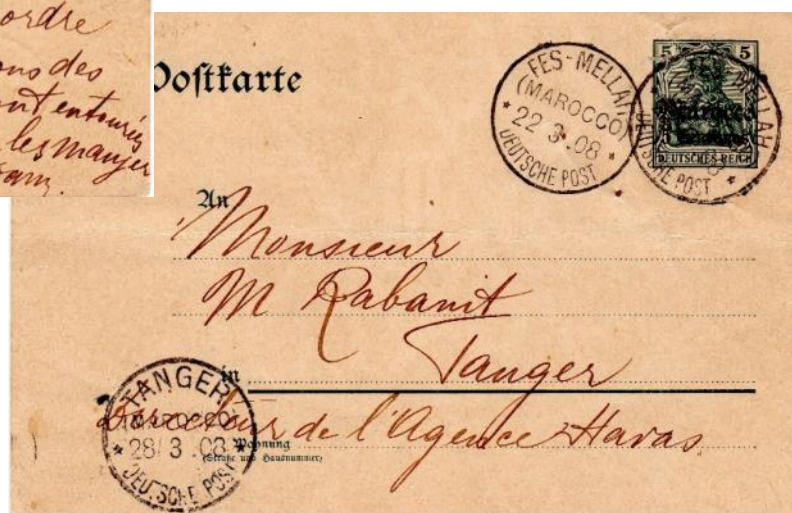 ordre
ons des
ont entourés
les manger
Postkarte
FES-MELLAH
(MAROCCO)
22 3 .08
DEUTSCHE POST
5 5
Marocco
5 Centimos
DEUTSCHES REICH
FES-MELLAH
DEUTSCHE POST
An
Monsieur
M Rabanit
in Tanger
Directeur de l'Agence Havas
Wohnung
(Straße und Hausnummer)
TANGER
(MAROCCO)
28/3 .08
DEUTSCHE POST